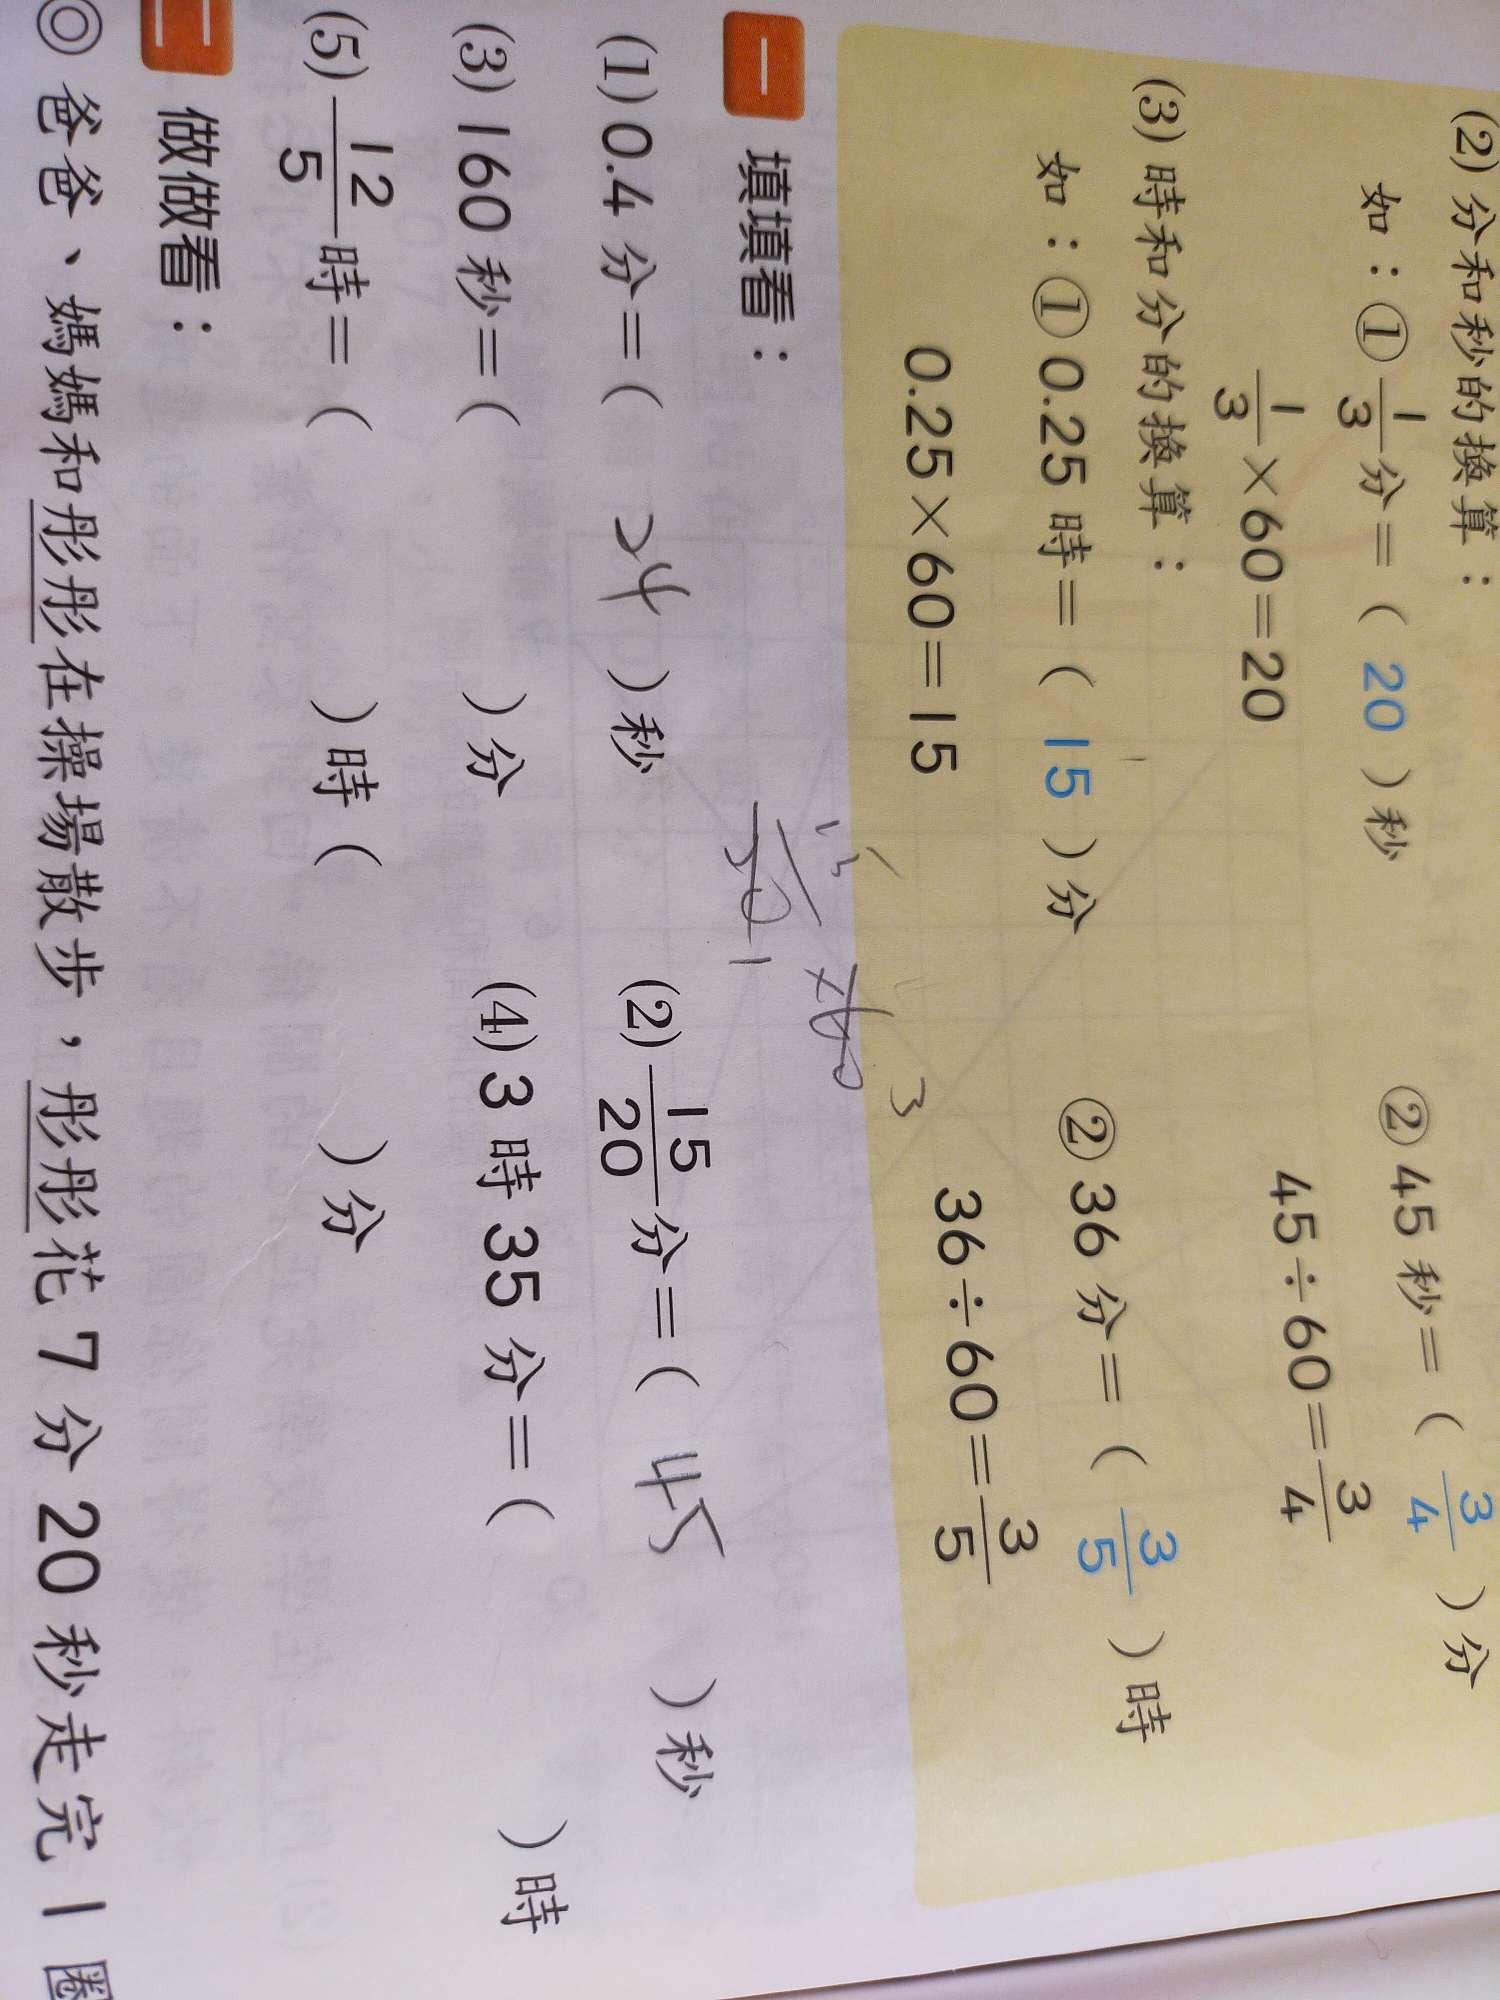 (2)分和秒的換算：
如：①1/3分＝( 20 )秒 ②45秒＝( 3/4 )分
1/3×60＝20 45÷60＝3/4
(3)時和分的換算：
如：①0.25時＝( 15 )分 ②36分＝( 3/5 )時
0.25×60＝15 36÷60＝3/5
3
一 填填看：
(1)0.4分＝( 24 )秒 (2)15/20分＝( 45 )秒
(3)160秒＝( )分 (4)3時35分＝( )時
(5)12/5時＝( )時( )分
二 做做看：
◎爸爸、媽媽和彤彤在操場散步，彤彤花7分20秒走完1圈